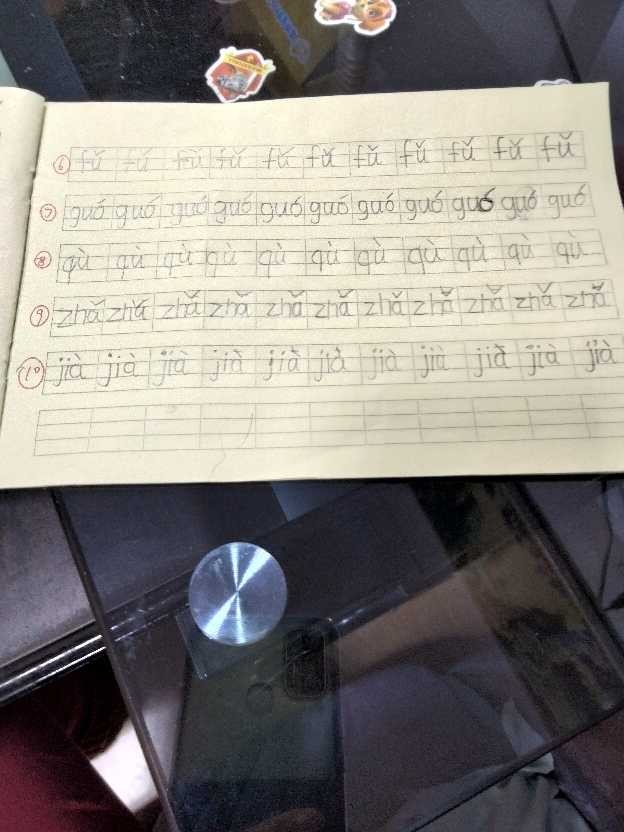 ⑥ fǔ fǔ fǔ fǔ fǔ fǔ fǔ fǔ fǔ fǔ fǔ
⑦ guó guó guó guó guó guó guó guó guó guó guó
⑧ qù qù qù qù qù qù qù qù qù qù qù
⑨ zhǎ zhǎ zhǎ zhǎ zhǎ zhǎ zhǎ zhǎ zhǎ zhǎ zhǎ
⑩ jià jià jià jià jià jià jià jià jià jià jià